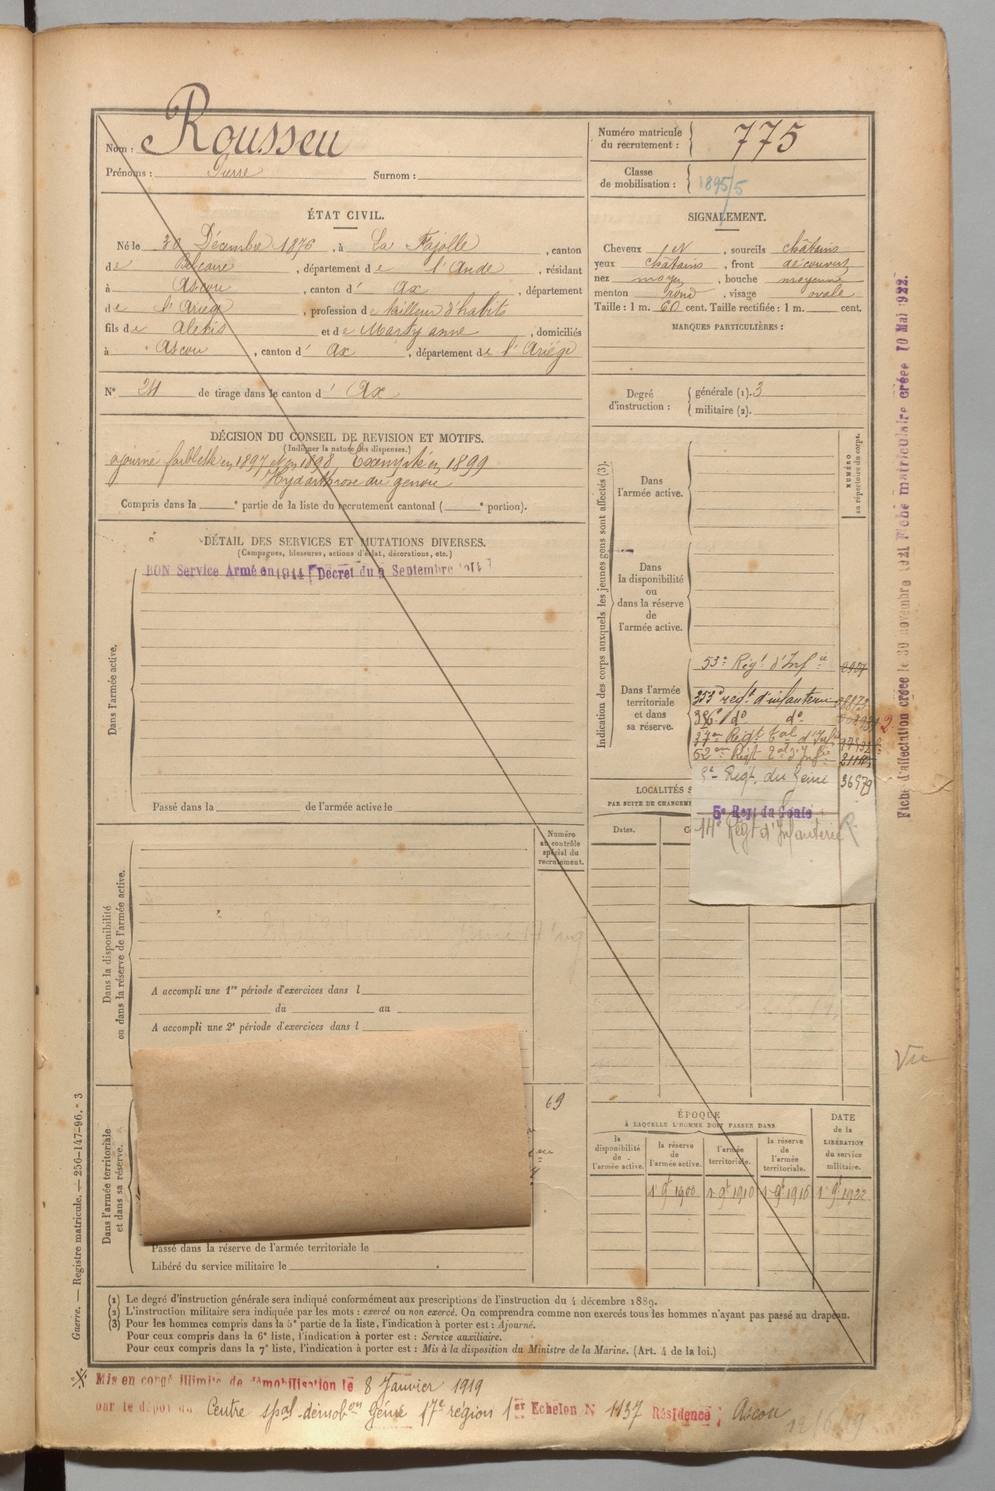 Nom : Rousseu
Prénoms : Pierre Surnom :
Numéro matricule du recrutement : 775
Classe de mobilisation : 1895/5
ÉTAT CIVIL.
Né le 30 Décembre 1876, à La Fajolle, canton
de Belcaire, département de l'Aude, résidant
à Ascou, canton d' Ax, département
de l'Ariège, profession de tailleur d'habits
fils de Alexis et de Marty anne, domiciliés
à Ascou, canton d' Ax, département de l'Ariège
N° 24 de tirage dans le canton d' Ax
SIGNALEMENT.
Cheveux, sourcils châtains
yeux châtains, front découvert
nez moyen, bouche moyenne
menton rond, visage ovale
Taille : 1 m. 60 cent. Taille rectifiée : 1 m. cent.
MARQUES PARTICULIÈRES :
Degré d'instruction : générale (1). 3
militaire (2).
DÉCISION DU CONSEIL DE REVISION ET MOTIFS.
(Indiquer la nature des dispenses.)
ajourné faiblesse en 1897 et en 1898, Exempté en 1899
Hydarthrose du genou
Compris dans la e partie de la liste du recrutement cantonal ( e portion).
DÉTAIL DES SERVICES ET MUTATIONS DIVERSES.
(Campagnes, blessures, actions d'éclat, décorations, etc.)
BON Service Armé en 1914 (Décret du 9 Septembre 1914)
Dans l'armée active.
Passé dans la de l'armée active le
Numéro au contrôle spécial du recrutement.
Dans la disponibilité ou dans la réserve de l'armée active.
A accompli une 1re période d'exercices dans l
du au
A accompli une 2e période d'exercices dans l
69
Dans l'armée territoriale et dans sa réserve.
Passé dans la réserve de l'armée territoriale le
Libéré du service militaire le
Indication des corps auxquels les jeunes gens sont affectés (3).
NUMÉRO au répertoire du corps.
Dans l'armée active.
Dans la disponibilité ou dans la réserve de l'armée active.
Dans l'armée territoriale et dans sa réserve.
53e Régt d'Infie
353e régt d'infanterie
do do
Régt Tal d'Infie
Régt Tal d'Infie
Régt du Génie 36979
5e Reg. du Génie
14e Régt d'Infanterie R.
LOCALITÉS S
PAR SUITE DE CHANGEM
Dates. C
ÉPOQUE
À LAQUELLE L'HOMME DOIT PASSER DANS
la disponibilité de l'armée active.
la réserve de l'armée active.
l'armée territoriale.
la réserve de l'armée territoriale.
DATE de la LIBÉRATION du service militaire.
1 9t 1900 1 9t 1910 1 9t 1916 1 9t 1922
(1) Le degré d'instruction générale sera indiqué conformément aux prescriptions de l'instruction du 4 décembre 1889.
(2) L'instruction militaire sera indiquée par les mots : exercé ou non exercé. On comprendra comme non exercés tous les hommes n'ayant pas passé au drapeau.
(3) Pour les hommes compris dans la 5e partie de la liste, l'indication à porter est : Ajourné.
Pour ceux compris dans la 6e liste, l'indication à porter est : Service auxiliaire.
Pour ceux compris dans la 7e liste, l'indication à porter est : Mis à la disposition du Ministre de la Marine. (Art. 4 de la loi.)
Mis en congé illimité de démobilisation le 8 Janvier 1919
par le dépôt du Centre spal démobon Génie 17e région 1er Echelon N 1137 Résidence : Ascou
Guerre. — Registre matricule. — 256-147-96. * 3
Fiche d'affectation créée le 30 novembre 1921 Fiche matriculaire créée 10 Mai 1922.
Vu